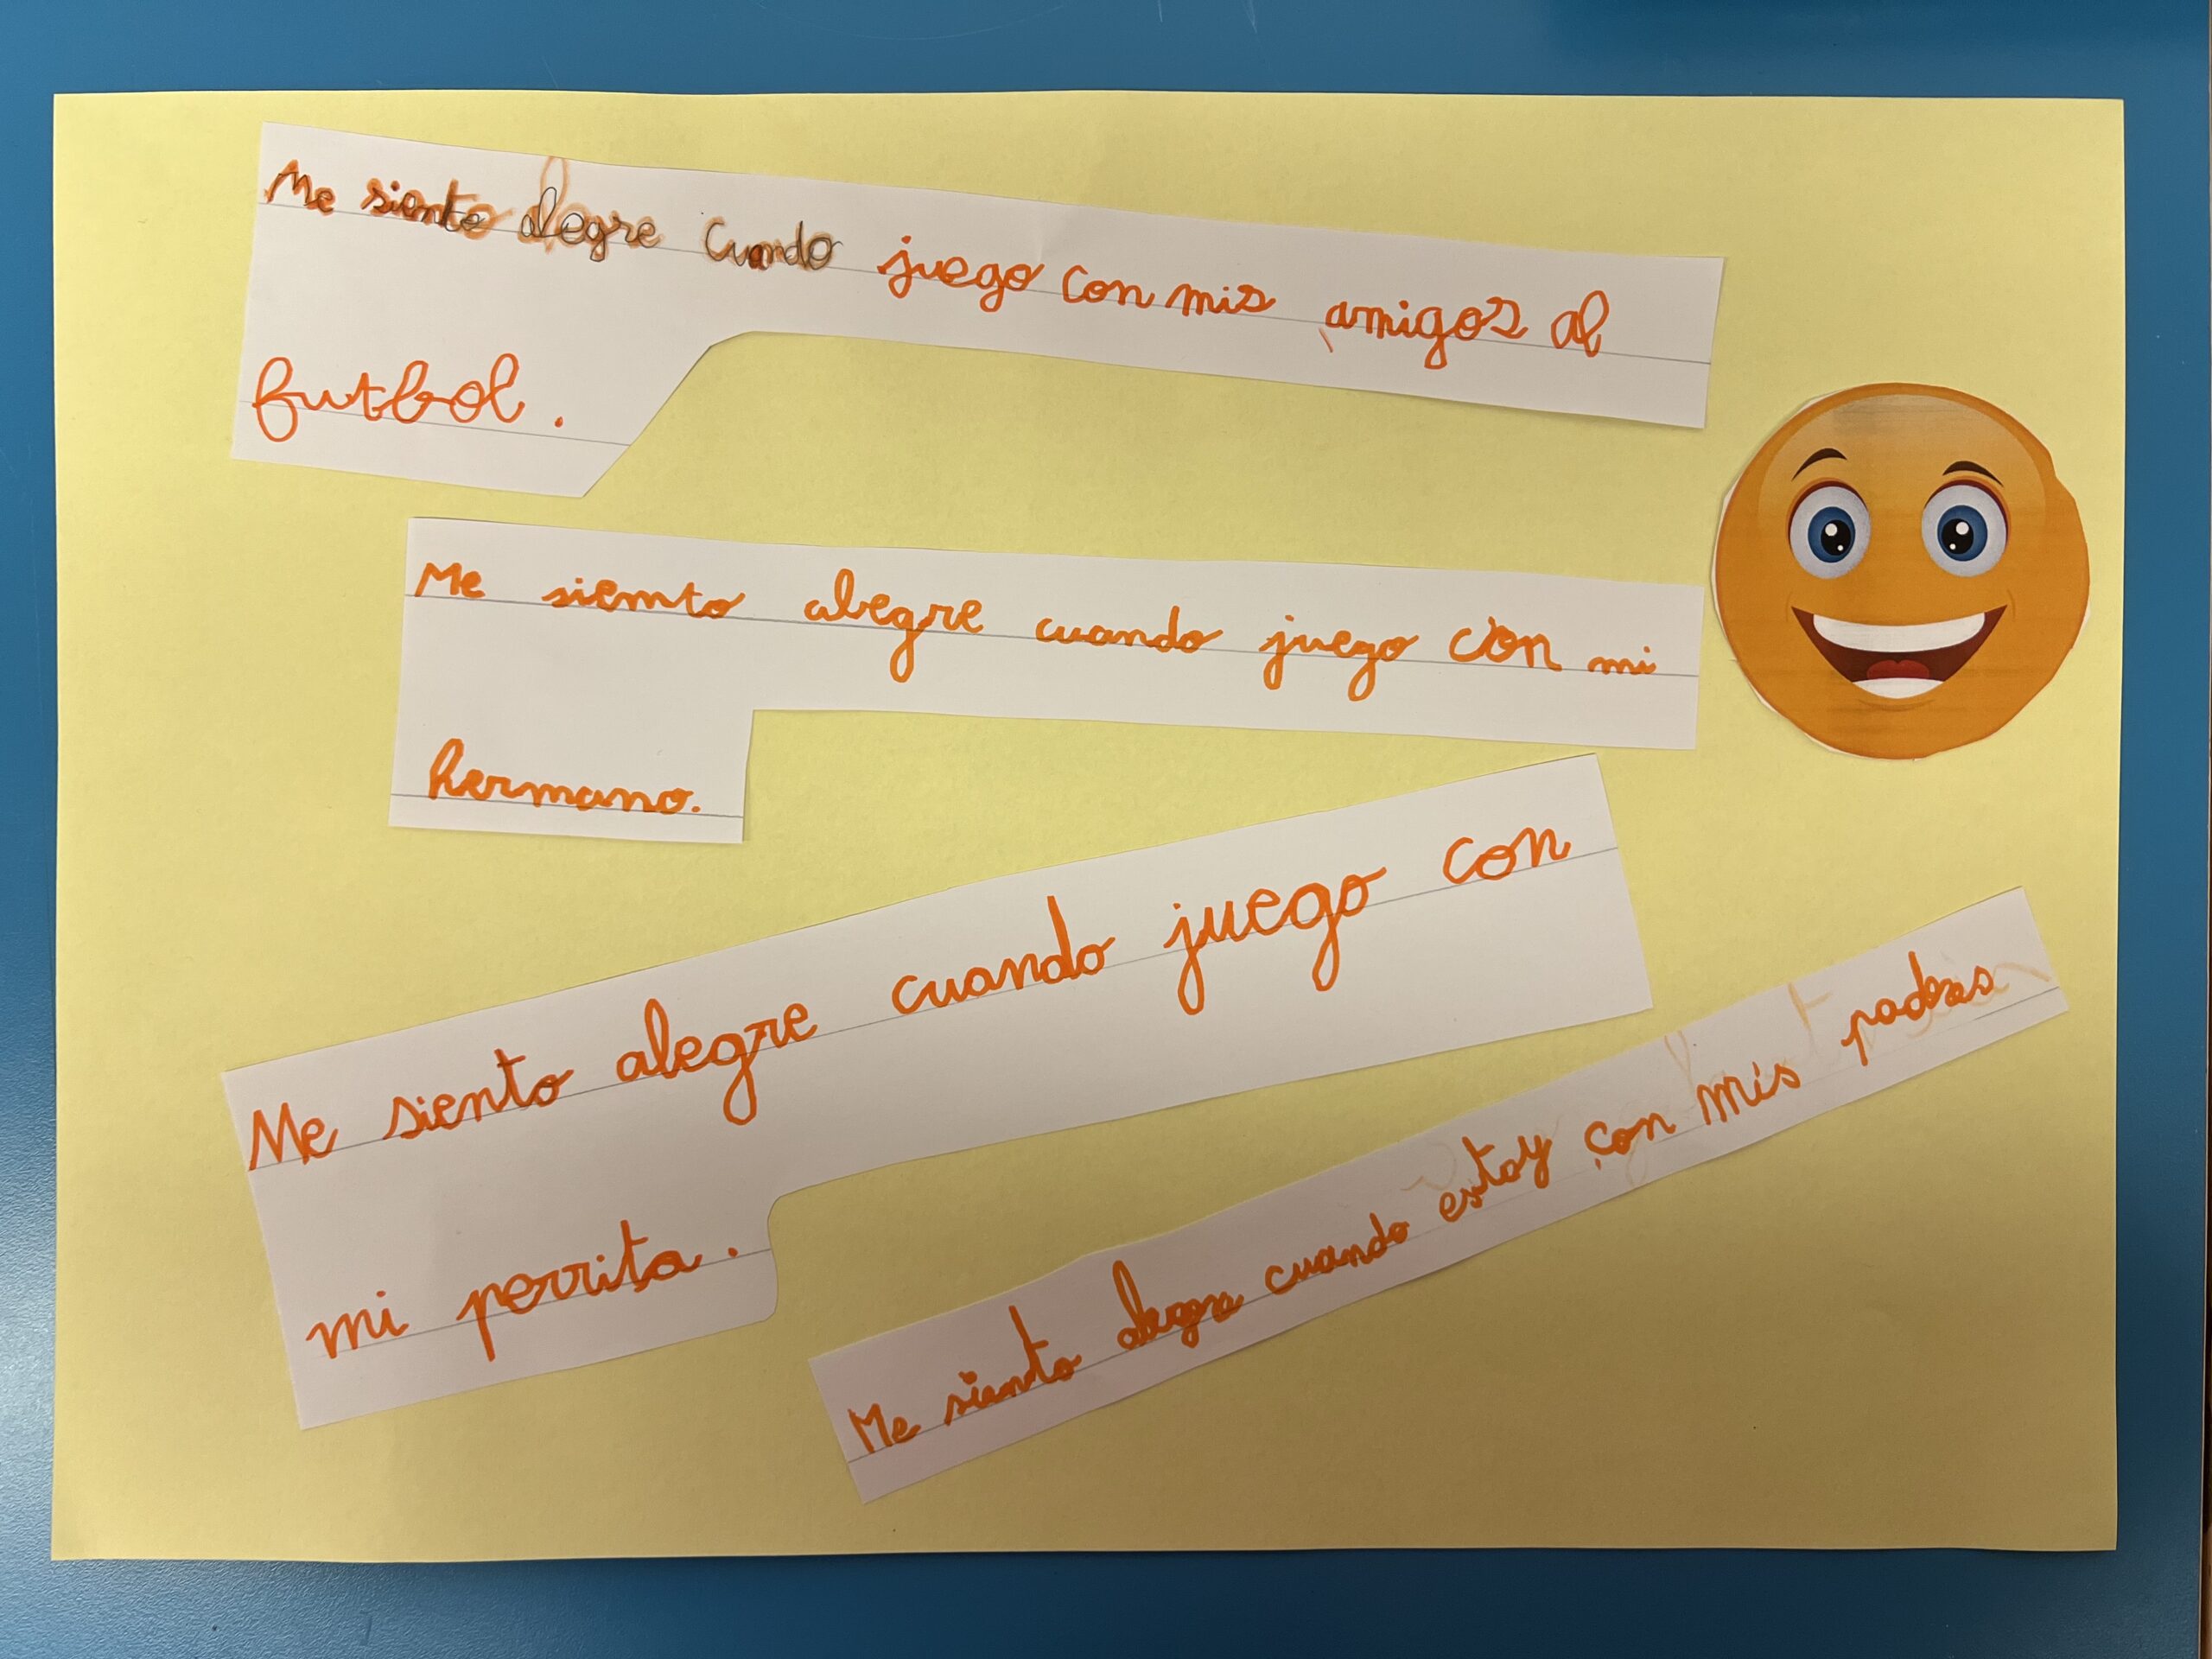 Me siento alegre cuando juego con mis amigos al
futbol.
Me siento alegre cuando juego con mi
hermano.
Me siento alegre cuando juego con
mi perrita.
Me siento alegre cuando estoy con mis padres